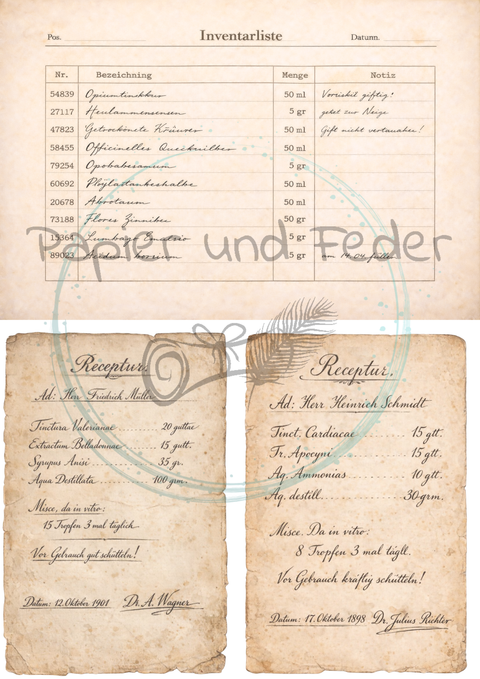 Pos. Inventarliste Datum.
Nr. Bezeichnung Menge Notiz
54839 Opiumtinktur 50 ml Vorsicht giftig!
27117 5 gr
47823 Getrocknete Kräuter 50 ml Gift nicht vertauschen!
58455 Officinelles Quecksilber 50 ml
79254 Opobalsamum 5 gr
60692 50 ml
20678 Abrotanum 50 ml
73188 Flores 50 gr
15364 Lumbago 5 gr
89023 5 gr am 14.04
Papier und Feder
Receptur.
Ad: Herr Friedrich Müller
Tinctura Valerianae 20 guttae
Extractum Belladonnae 15 gutt.
Syrupus Anisi 35 gr.
Aqua Destillata 100 grm.
Misce, da in vitro:
15 Tropfen 3 mal täglich
Vor Gebrauch gut schütteln!
Datum: 12. Oktober 1901 Dr. A. Wagner
Receptur.
Ad: Herr Heinrich Schmidt
Tinct. Cardiacae 15 gtt.
Fr. Apocyni 15 gtt.
Aq. Ammonias 10 gtt.
Aq. destill. 30 grm.
Misce. Da in vitro:
8 Tropfen 3 mal tägll.
Vor Gebrauch kräftig schütteln!
Datum: 17. Oktober 1898 Dr. Julius Richter